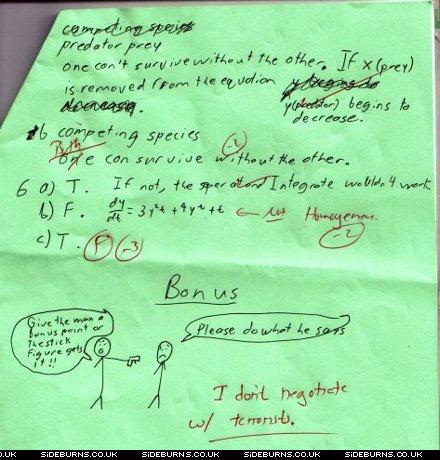 competing species
predator prey
one can't survive without the other. If x(prey)
is removed from the equation
y(predator) begins to
decrease.
decrease.
1b competing species
Both
One can survive without the other.
-2
6 a) T. If not, the separate and Integrate wouldn't work
b) F. dy/dt = 3y²t + 4y²t + t ← not Homogeneous
-2
c) T. F -3
Bonus
Give the man a
bonus point or
the stick
figure gets
it!!
Please do what he says
I don't negotiate
w/ terrorists.
.UK SIDEBURNS.CO.UK SIDEBURNS.CO.UK SIDEBURNS.CO.UK SIDEBURNS.CO.UK SIDEBU